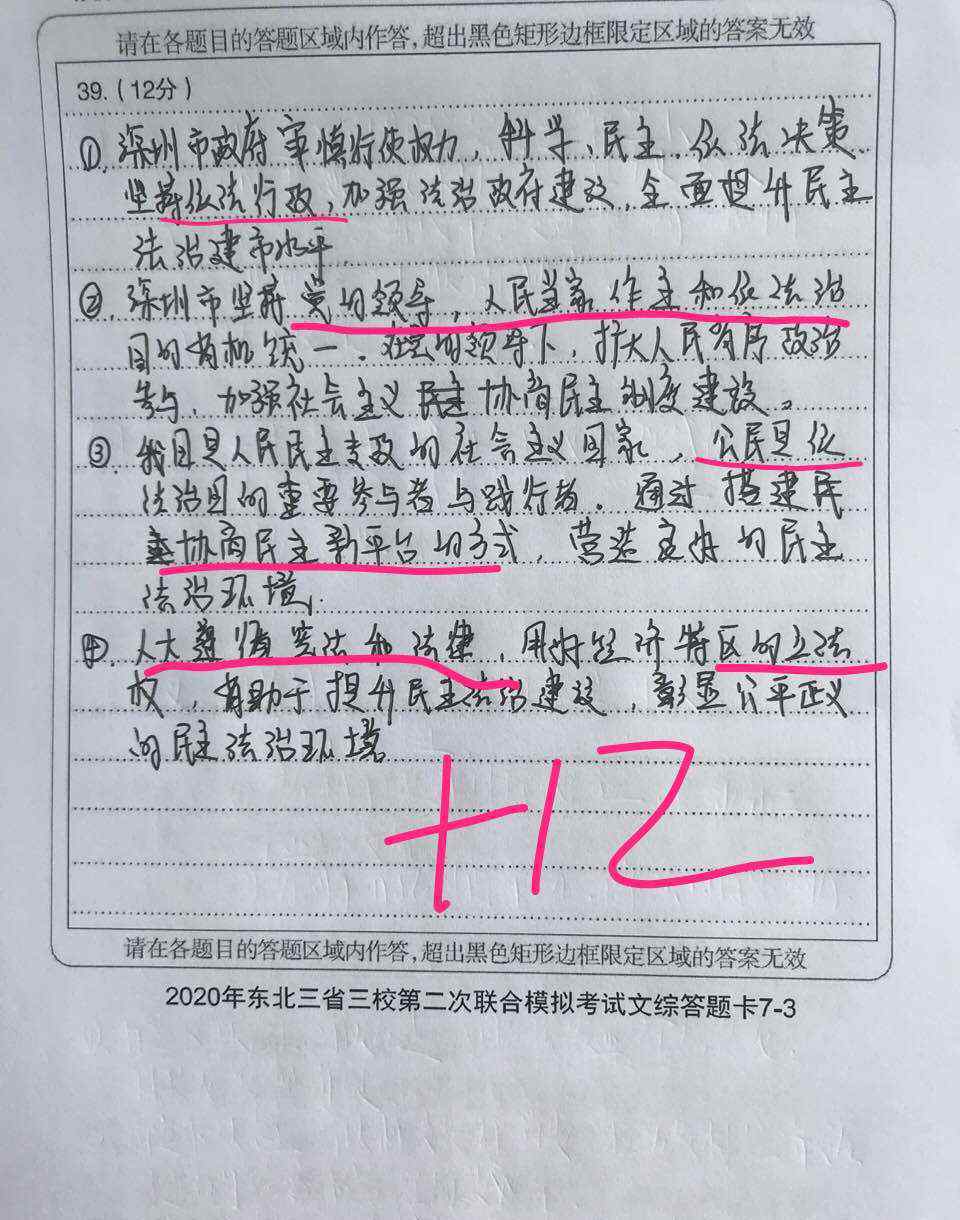 请在各题目的答题区域内作答,超出黑色矩形边框限定区域的答案无效
39.(12分)
①.深圳市政府审慎行使权力,科学、民主、依法决策.
坚持依法行政,加强法治政府建设,全面提升民主
法治建市水平.
②.深圳市坚持党的领导,人民当家作主和依法治
国的有机统一.在党的领导下,扩大人民有序政治
参与,加强社会主义协商民主制度建设。
③.我国是人民民主专政的社会主义国家,公民是依
法治国的重要参与者与践行者.通过搭建民
主协商民主新平台的方式,营造良好的民主
法治环境.
④.人大遵循宪法和法律,用好经济特区的立法
权,有助于提升民主法治建设,彰显公平正义
的民主法治环境
+12
请在各题目的答题区域内作答,超出黑色矩形边框限定区域的答案无效
2020年东北三省三校第二次联合模拟考试文综答题卡7-3